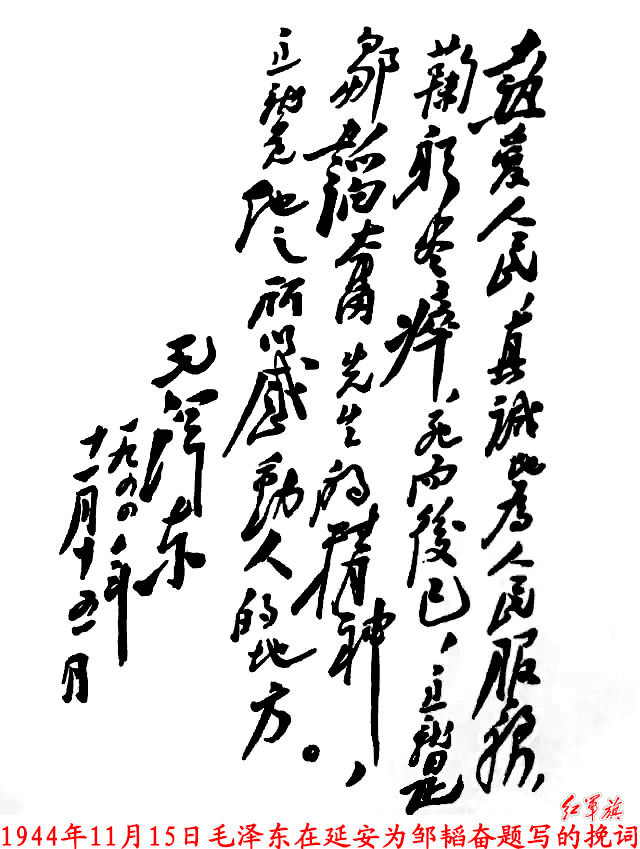 熱愛人民，真誠地為人民服務，
鞠躬尽瘁，死而後已，這就是
鄒韜奮先生的精神，
這就是他之所以感動人的地方。
毛泽东
一九四四年
十一月十五日
红军旗
1944年11月15日毛泽东在延安为邹韬奋题写的挽词